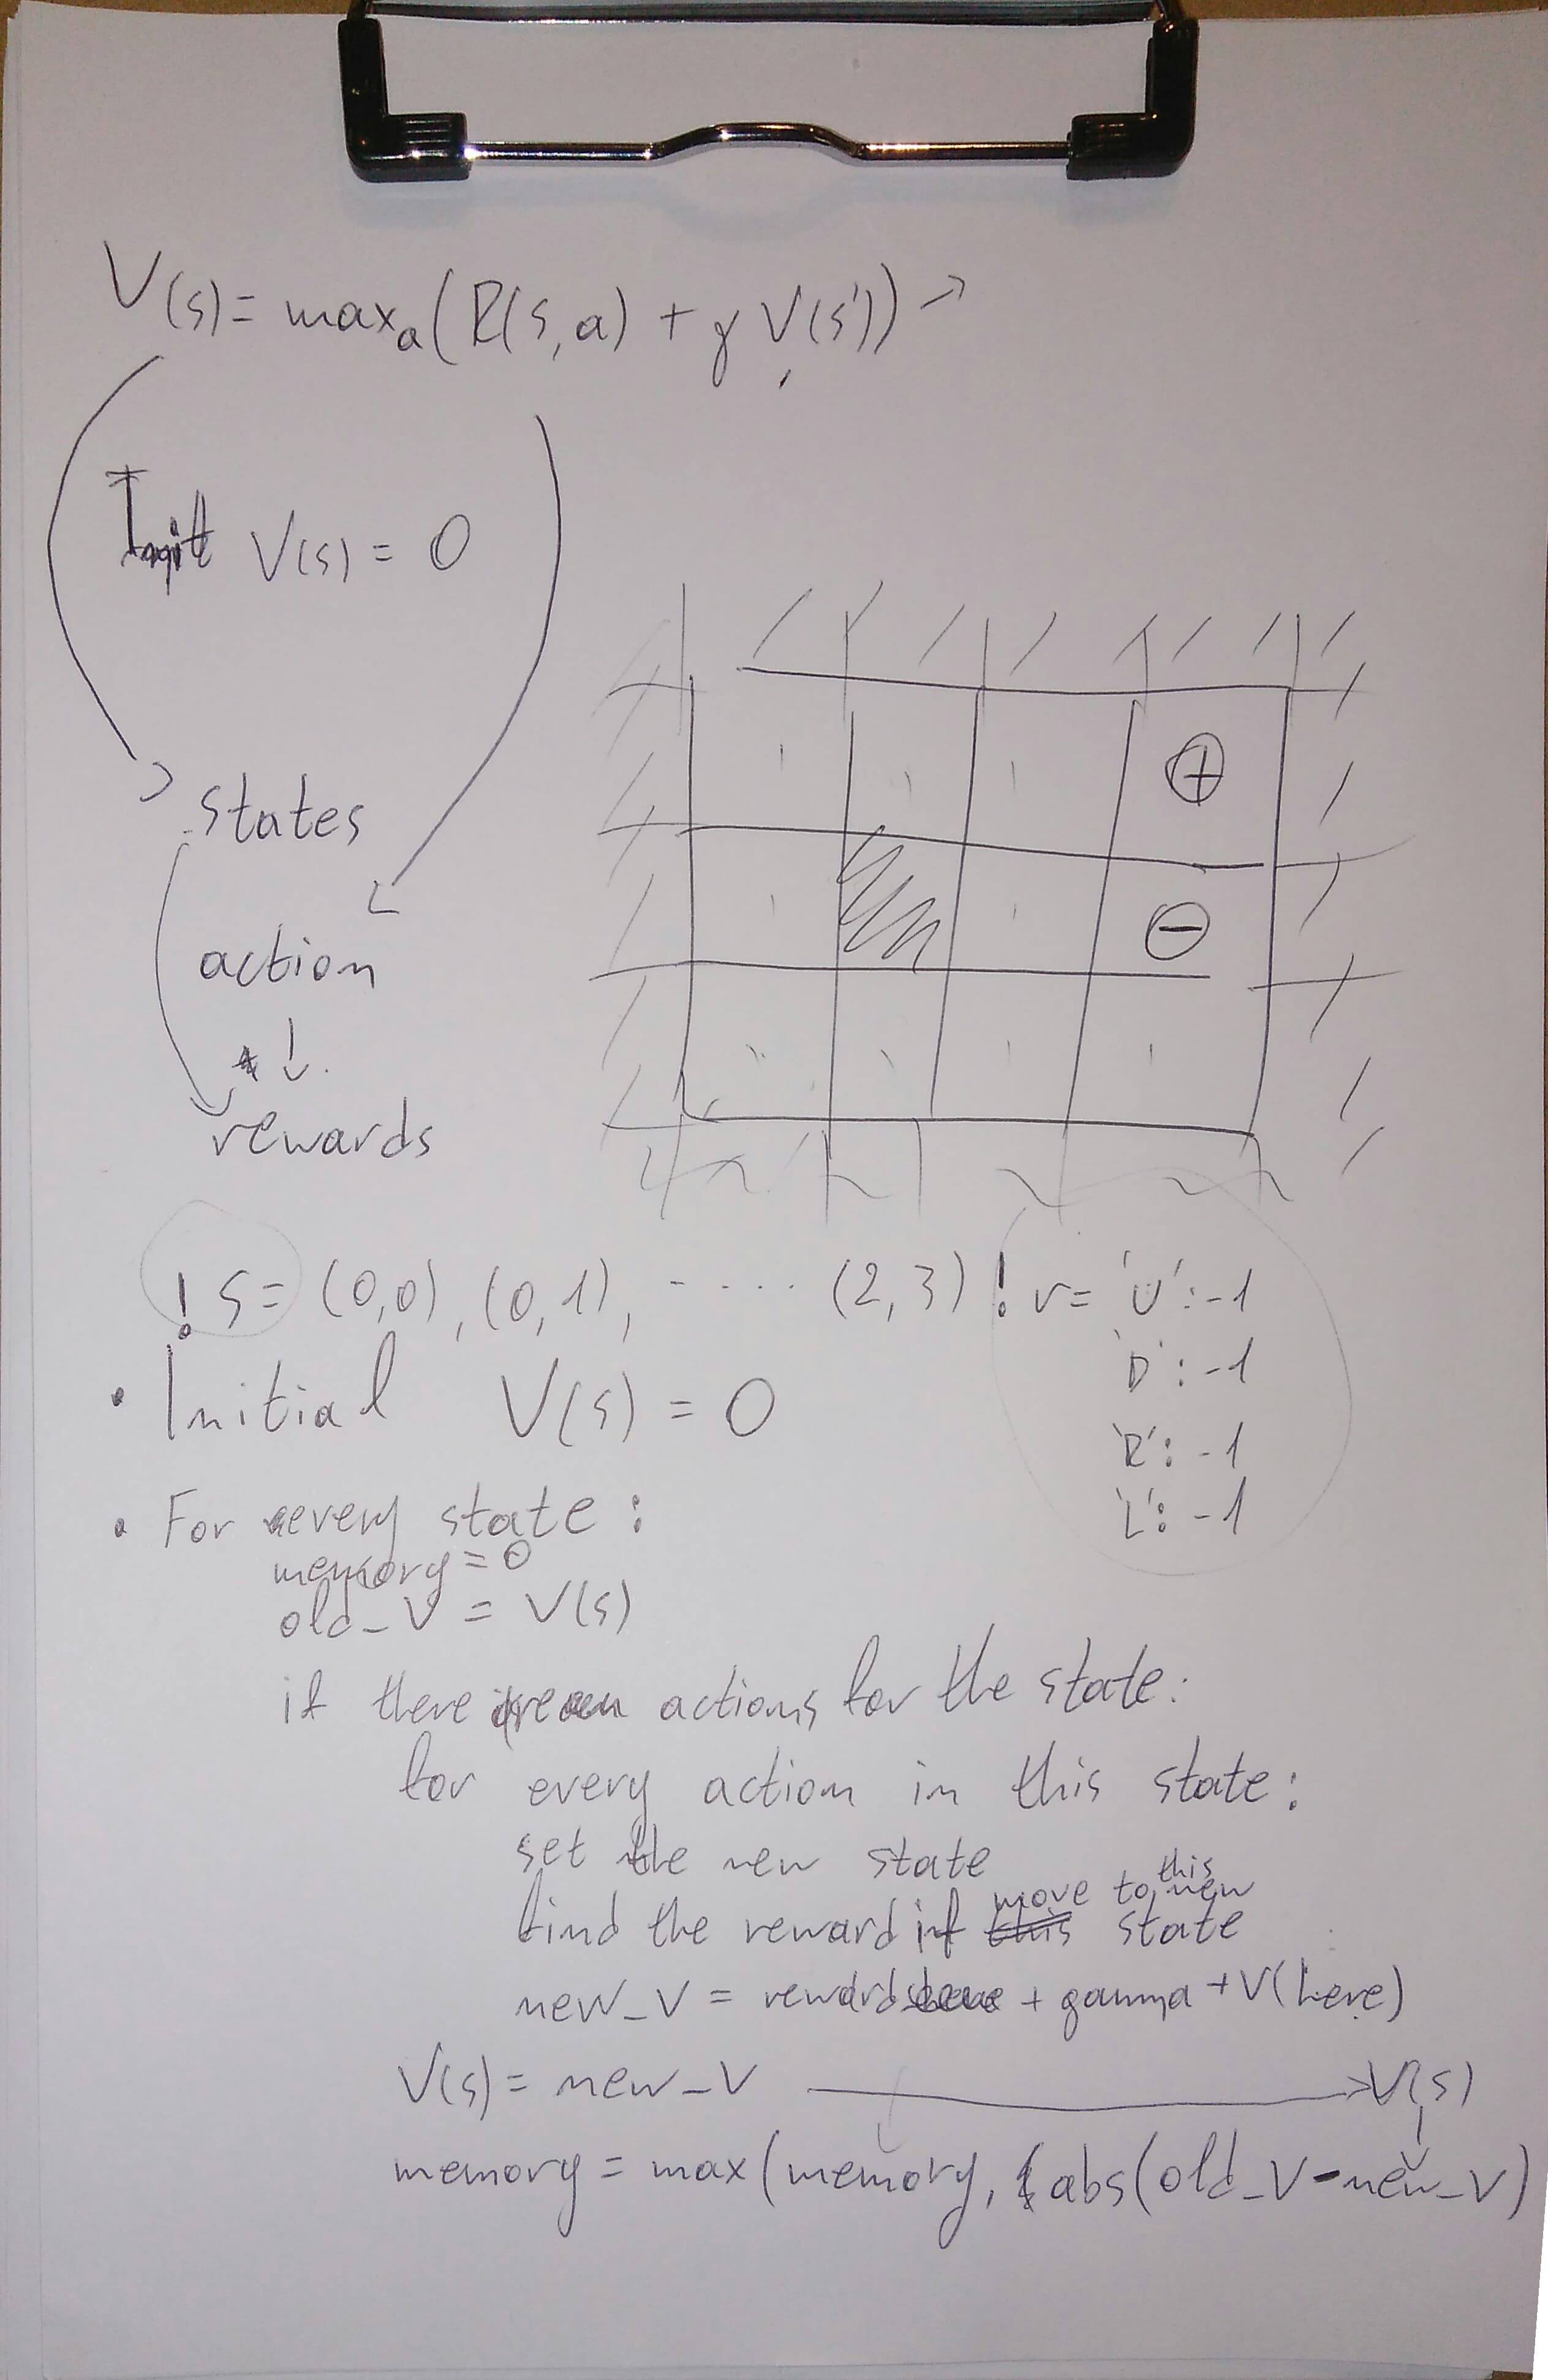 V(s) = maxₐ(R(s,a) + γ V(s')) →
Init V(s) = 0
states
action
rewards
+
-
! s = (0,0), (0,1), ..... (2,3) ! r = 'U': -1
'D': -1
'R': -1
'L': -1
• Initial V(s) = 0
• For every state:
memory = 0
old_V = V(s)
if there are actions for the state:
for every action in this state:
set the new state
find the reward if move to this new state
new_V = reward + gamma + V(here)
V(s) = new_V → V(s)
memory = max(memory, abs(old_V - new_V)